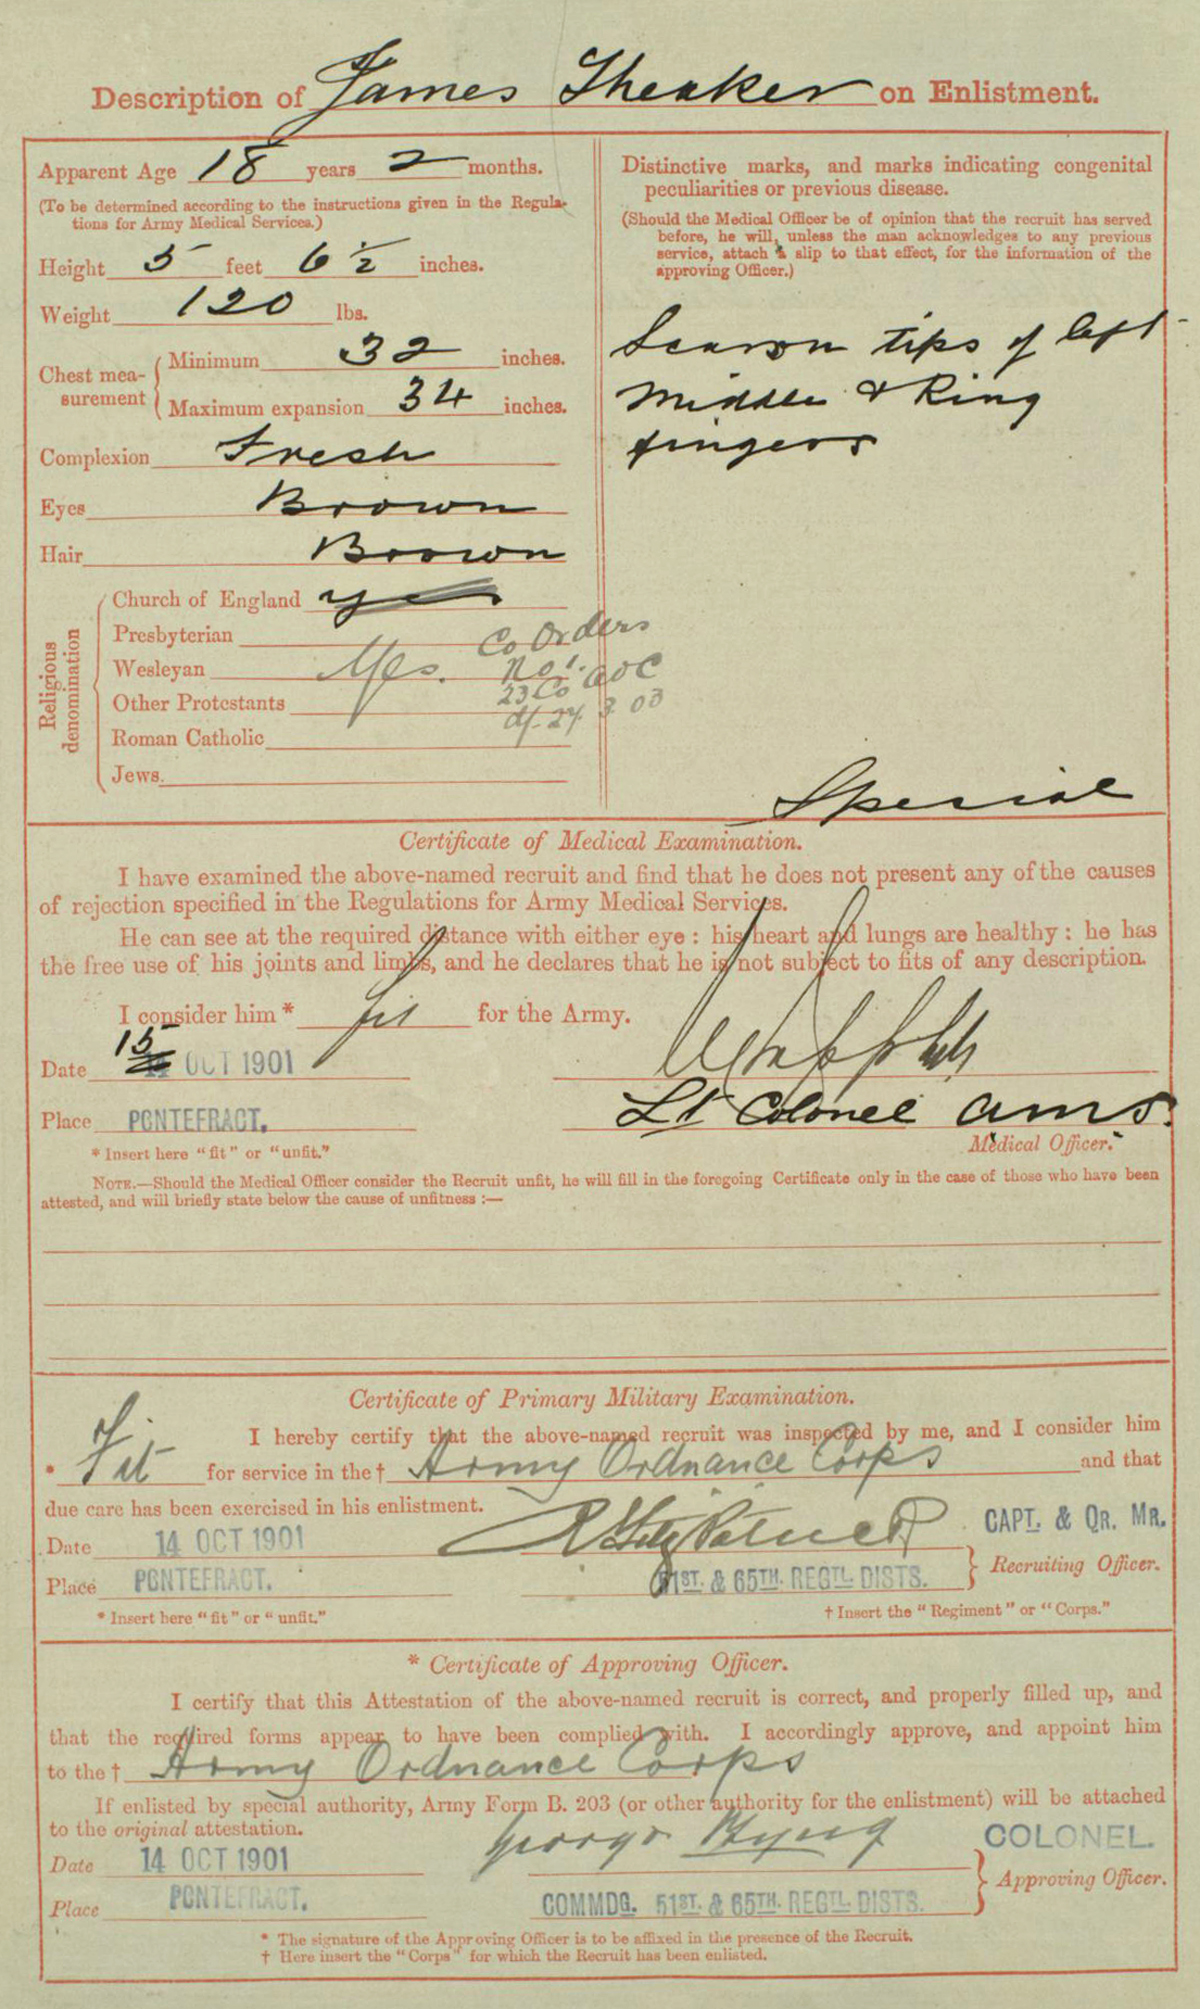 Description of James Theaker on Enlistment.
Apparent Age 18 years 2 months.
(To be determined according to the instructions given in the Regula-
tions for Army Medical Services.)
Height 5 feet 6 1/2 inches.
Weight 120 lbs.
Chest mea-
surement
Minimum 32 inches.
Maximum expansion 34 inches.
Complexion Fresh
Eyes Brown
Hair Brown
Religious
denomination
Church of England yes
Presbyterian
Wesleyan Yes.
Other Protestants
Roman Catholic
Jews.
Co Orders
No 1.
23 Co AOC
d/- 27 3 03
Distinctive marks, and marks indicating congenital
peculiarities or previous disease.
(Should the Medical Officer be of opinion that the recruit has served
before, he will, unless the man acknowledges to any previous
service, attach a slip to that effect, for the information of the
approving Officer.)
Scars on tips of left
Middle & Ring
fingers
Special
Certificate of Medical Examination.
I have examined the above-named recruit and find that he does not present any of the causes
of rejection specified in the Regulations for Army Medical Services.
He can see at the required distance with either eye : his heart and lungs are healthy : he has
the free use of his joints and limbs, and he declares that he is not subject to fits of any description.
I consider him * fit for the Army.
Date 15 OCT 1901
Place PONTEFRACT.
Lt Colonel AMS.
Medical Officer.
* Insert here "fit" or "unfit."
NOTE.—Should the Medical Officer consider the Recruit unfit, he will fill in the foregoing Certificate only in the case of those who have been
attested, and will briefly state below the cause of unfitness :—
Certificate of Primary Military Examination.
I hereby certify that the above-named recruit was inspected by me, and I consider him
* Fit for service in the † Army Ordnance Corps and that
due care has been exercised in his enlistment.
Date 14 OCT 1901
Place PONTEFRACT.
CAPT. & QR. MR.
51ST. & 65TH. REGTL. DISTS.
Recruiting Officer.
* Insert here "fit" or "unfit."
† Insert the "Regiment" or "Corps."
* Certificate of Approving Officer.
I certify that this Attestation of the above-named recruit is correct, and properly filled up, and
that the required forms appear to have been complied with. I accordingly approve, and appoint him
to the † Army Ordnance Corps
If enlisted by special authority, Army Form B. 203 (or other authority for the enlistment) will be attached
to the original attestation.
George Byng COLONEL.
Date 14 OCT 1901
Approving Officer.
Place PONTEFRACT.
COMMDG. 51ST. & 65TH. REGTL. DISTS.
* The signature of the Approving Officer is to be affixed in the presence of the Recruit.
† Here insert the "Corps" for which the Recruit has been enlisted.